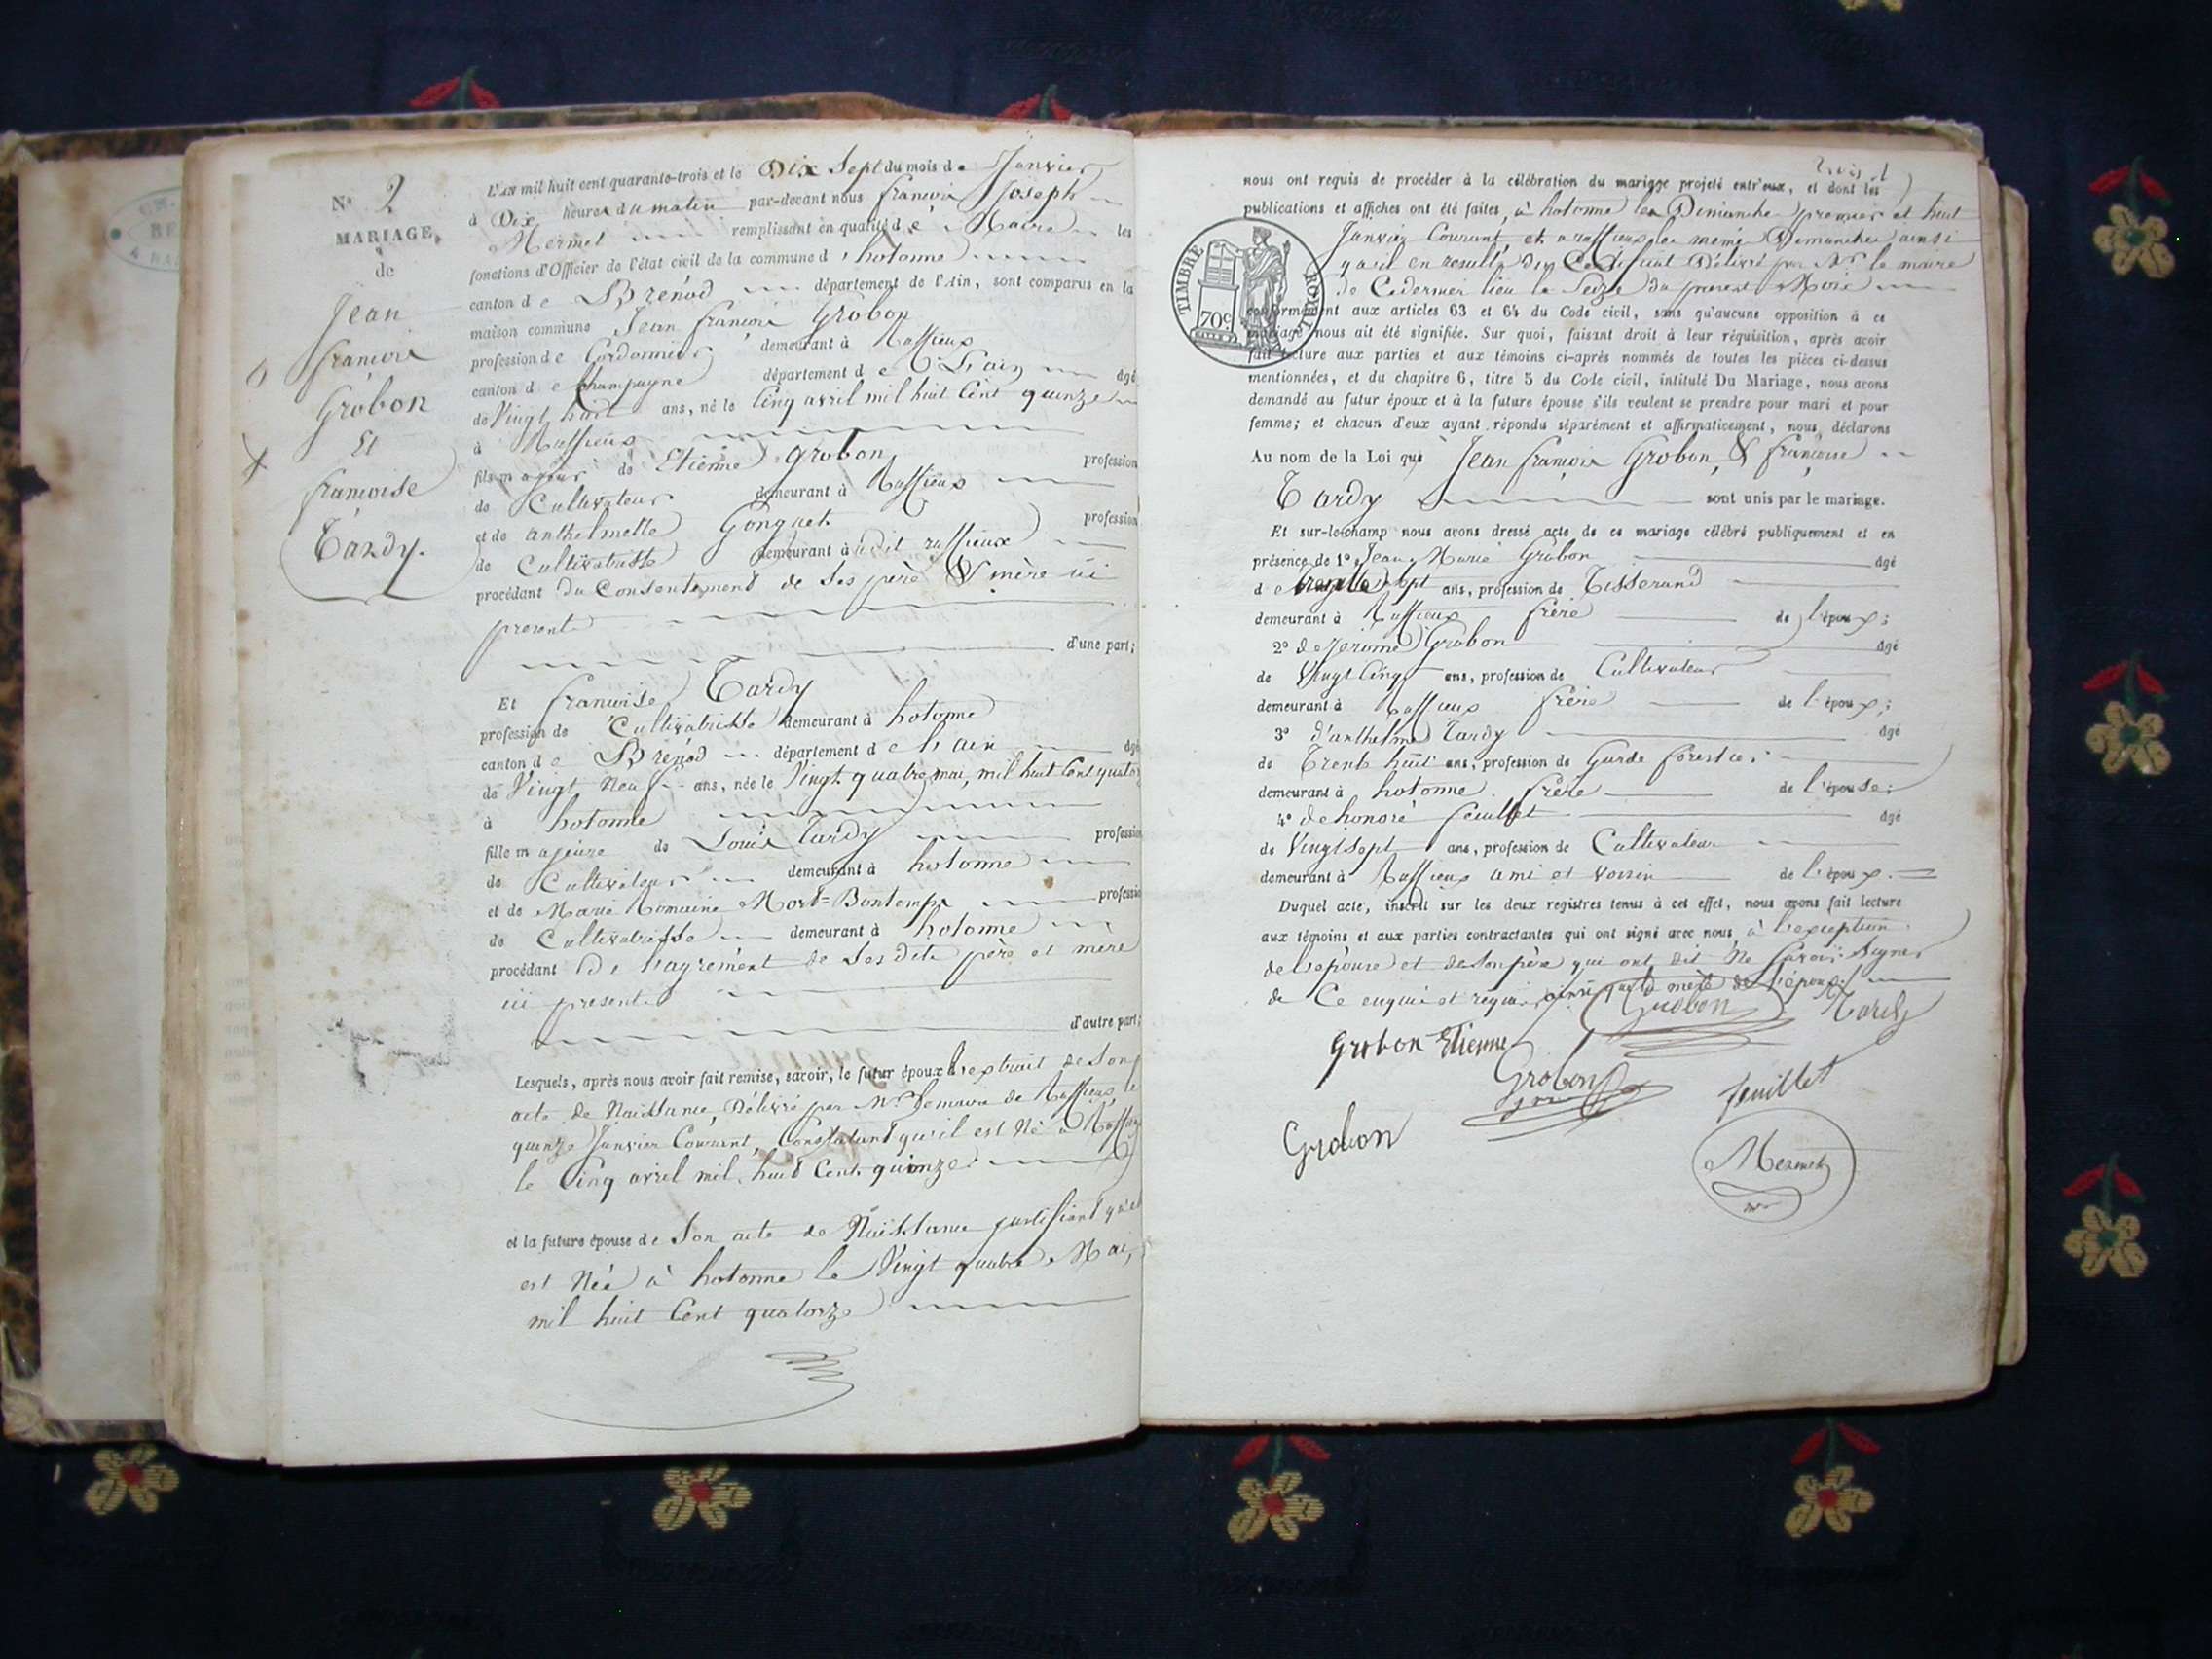 Nº 2
MARIAGE
de
Jean
françois
Grobon
Et
françoise
Tardy.
L'AN mil huit cent quarante-trois et le Dix Sept du mois de Janvier
à Dix heures du matin par-devant nous françois Joseph
Mermet remplissant en qualité de Maire les
fonctions d'Officier de l'état civil de la commune d'hotonne
canton de Brénod département de l'Ain, sont comparus en la
maison commune Jean françois Grobon
profession de Cordonnier demeurant à Ruffieux
canton de Champagne département de L'ain âgé
de Vingt huit ans, né le Cinq avril mil huit Cent quinze
à Ruffieux
fils majeur de Etienne Grobon profession
de Cultivateur demeurant à Ruffieux
et de anthelmette Gonguet profession
de Cultivatrisse demeurant audit ruffieux
procédant du Consentement de Ses père & mère ici
present
d'une part;
Et françoise Tardy
profession de Cultivatrisse demeurant à hotonne
canton de Brénod département de l'ain âgé
de Vingt Neuf ans, née le Vingt quatre mai, mil huit Cent quator
à hotonne
fille majeure de Louis Tardy profession
de Cultivateur demeurant à hotonne
et de Marie Romaine Mort=Bontemps profession
de Cultivatrisse demeurant à hotonne
procédant De l'agrément de Ses dits père et mère
ici present
d'autre part;
Lesquels, après nous avoir fait remise, savoir, le futur époux l'extrait de Son
acte de Naissance, Délivré par Mr. le maire de Ruffieux, le
quinze Janvier Courant, Constatant qu'il est Né à Ruffieux
le Cinq avril mil huit Cent quinze
et la future épouse de Son acte de Naissance justifiant qu'el
est Née à hotonne le Vingt quatre Mai,
mil huit Cent quatorze
nous ont requis de procéder à la célébration du mariage projeté entr'eux, et dont les
publications et affiches ont été faites, à hotonne les Dimanche premier et huit
Janvier Courant et a ruffieux les meme Dimanches ainsi
qu'il en resulte du Certificat Délivré par Mr. le maire
de Cedernier lieu le Seize du present Mois
TIMBRE ROYAL
70c
conformément aux articles 63 et 64 du Code civil, sans qu'aucune opposition à ce
mariage nous ait été signifiée. Sur quoi, faisant droit à leur réquisition, après avoir
fait lecture aux parties et aux témoins ci-après nommés de toutes les pièces ci-dessus
mentionnées, et du chapitre 6, titre 5 du Code civil, intitulé Du Mariage, nous avons
demandé au futur époux et à la future épouse s'ils veulent se prendre pour mari et pour
femme; et chacun d'eux ayant répondu séparément et affirmativement, nous déclarons
Au nom de la Loi que Jean françois Grobon, & françoise
Tardy sont unis par le mariage.
Et sur-le-champ nous avons dressé acte de ce mariage célébré publiquement et en
présence de 1º Jean Marie Grobon âgé
de sept ans, profession de Tisserand
demeurant à Ruffieux frère de l'époux;
2º de Jerome Grobon âgé
de Vingt Cinq ans, profession de Cultivateur
demeurant à Ruffieux frère de l'époux;
3º d'anthelme Tardy âgé
de Trente huit ans, profession de Garde forestier
demeurant à hotonne frère de l'épouse;
4º de honoré feuillet âgé
de Vingt sept ans, profession de Cultivateur
demeurant à Ruffieux ami et voisin de l'époux.
Duquel acte, inscrit sur les deux registres tenus à cet effet, nous avons fait lecture
aux témoins et aux parties contractantes qui ont signé avec nous à l'exception
de l'épouse et de son père qui ont dit Ne Savoir Signer
de Ce enquis et requis, ainsi que la mère de l'époux
Grobon Tardy
Grobon Etienne
Grobon feuillet
Grobon
Mermet